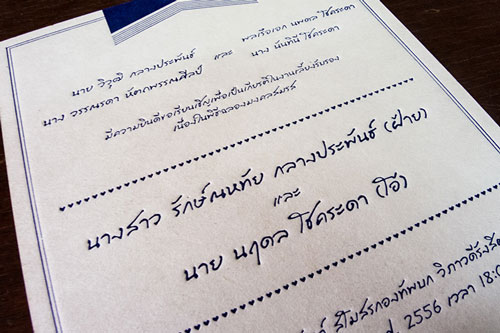 นาย วิวุฒิ กลางประพันธ์ และ พลเรือเอก นพดล โชคระดา
นาง วรรณรดา นัดกพรรณศิลป์ นาง นันทินี โชคระดา
มีความยินดีขอเรียนเชิญเพื่อเป็นเกียรติในงานเลี้ยงรับรอง
เนื่องในพิธีฉลองมงคลสมรส
นางสาว รักษ์ณหทัย กลางประพันธ์ (ฝ้าย)
และ
นาย นฤดล โชคระดา (โอ๋)
สโมสรกองทัพบก วิภาวดีรังสิต
2556 เวลา 18:0